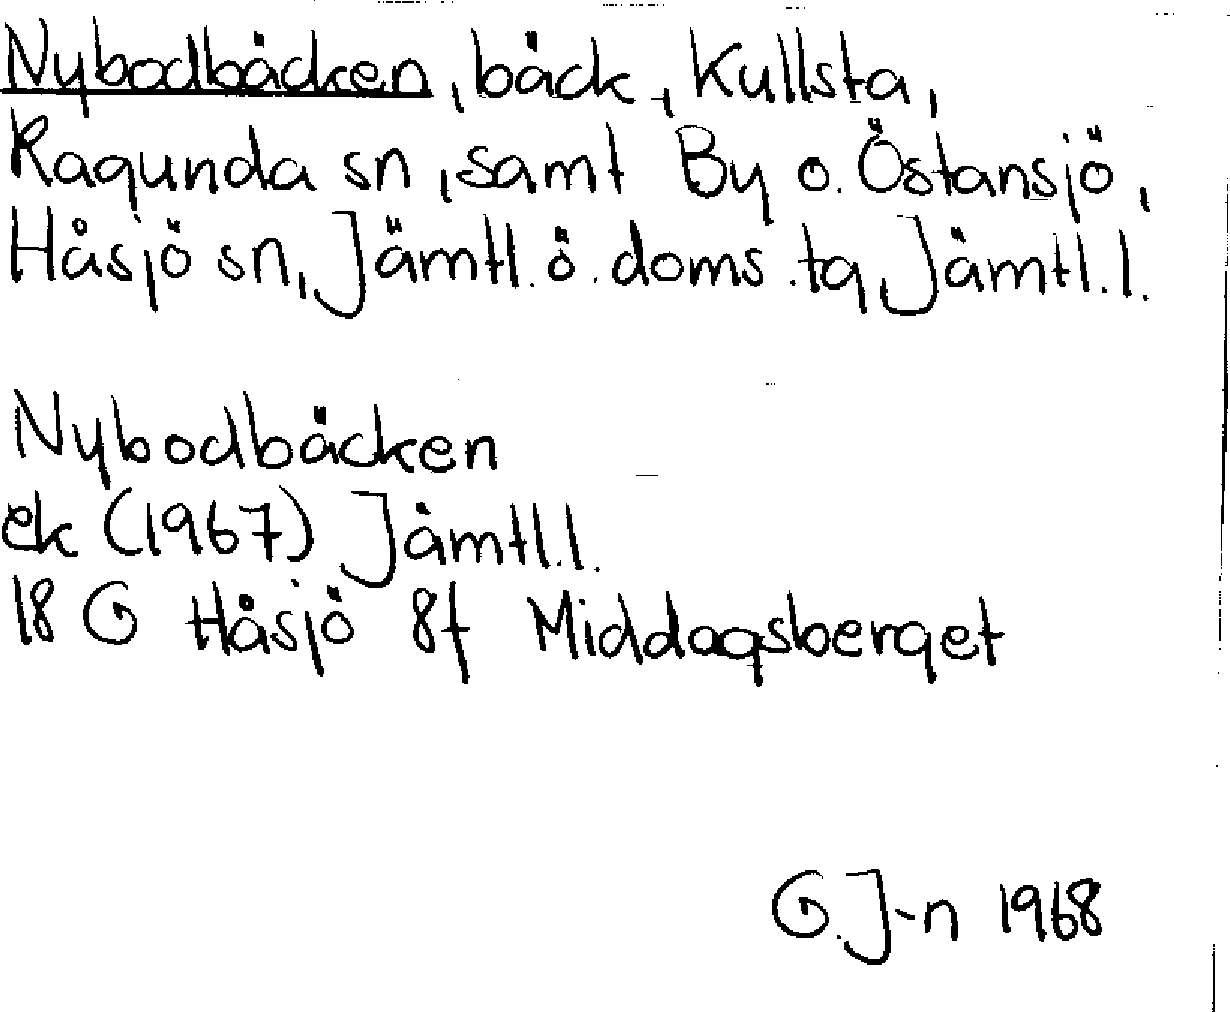 Nybodbäcken, bäck, Kullsta,
Ragunda sn, samt By o. Östansjö,
Håsjö sn, Jämtl. ö. doms. tg, Jämtl. l.
Nybodbäcken
ek (1967) Jämtl. l.
18 G Håsjö 8f Middagsberget
G. J-n 1968